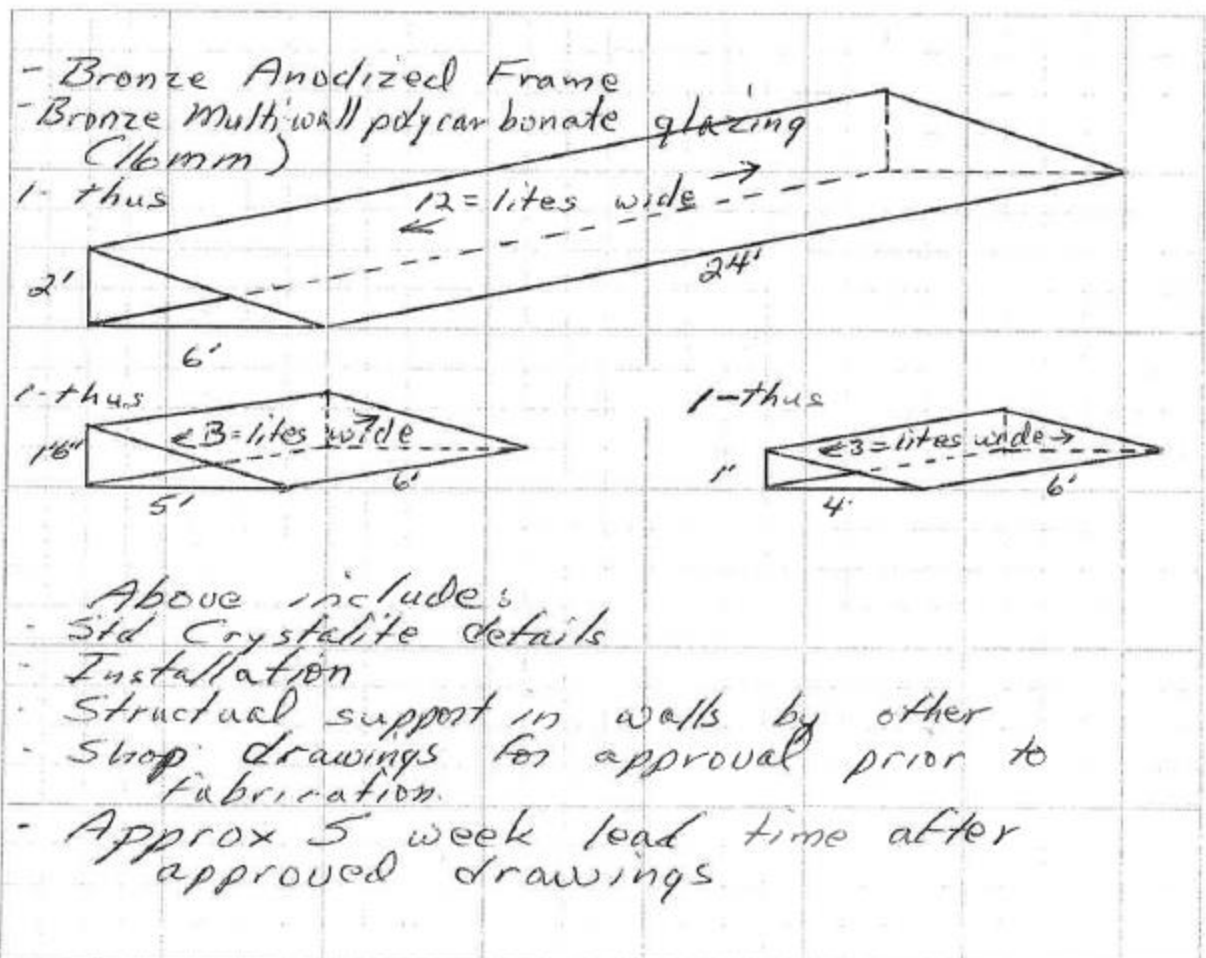 - Bronze Anodized Frame
- Bronze Multiwall polycarbonate glazing
(16mm)
1- thus
12 = lites wide
2'
24'
6'
1- thus
3 = lites wide
1'6"
6'
5'
1- thus
3 = lites wide
1'
6'
4'
Above include:
- Std Crystalite details
- Installation
- Structual support in walls by other
- Shop drawings for approval prior to
fabrication.
- Approx 5 week lead time after
approved drawings